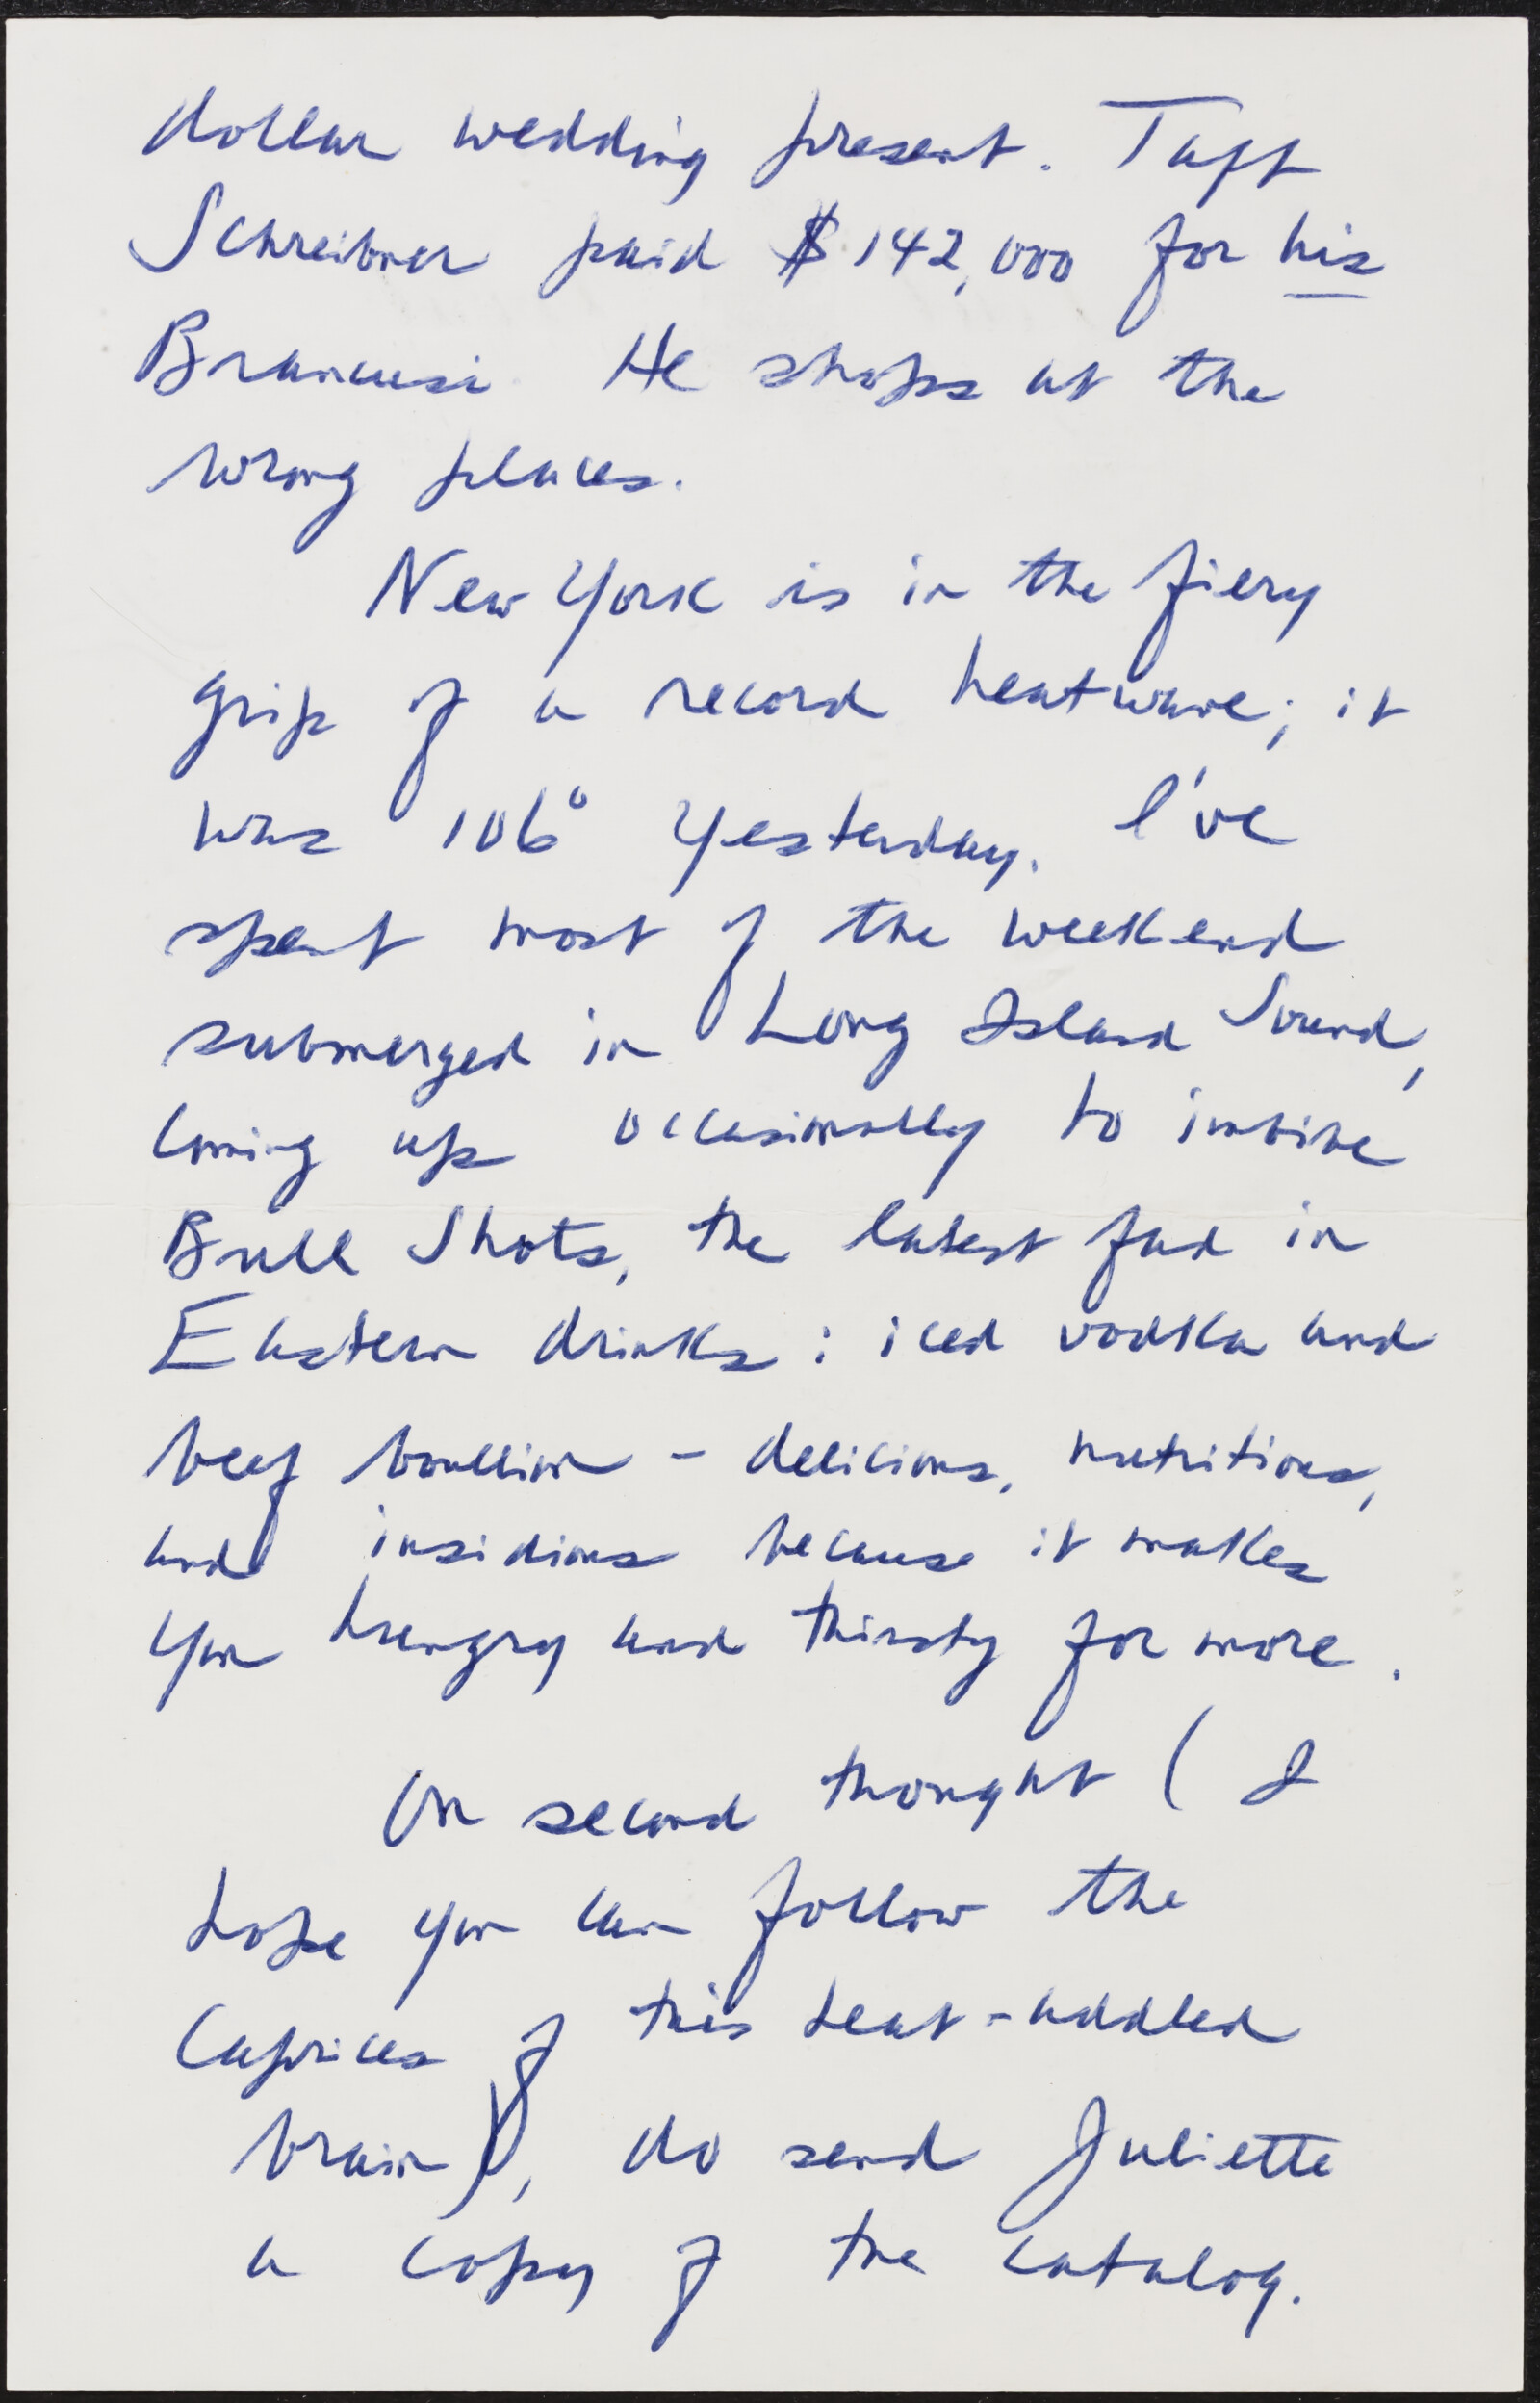 dollar wedding present. Taft
Schreiber paid $142,000 for his
Brancusi. He shops at the
wrong places.
New York is in the fiery
grip of a record heatwave; it
was 106° yesterday. I've
spent most of the weekend
submerged in Long Island Sound,
coming up occasionally to imbibe
Bull Shots, the latest fad in
Eastern drinks: iced vodka and
beef boullion - delicious, nutritious,
and insidious because it makes
you hungry and thirsty for more.
On second thought (I
hope you can follow the
caprices of this heat-addled
brain), do send Juliette
a copy of the catalog.